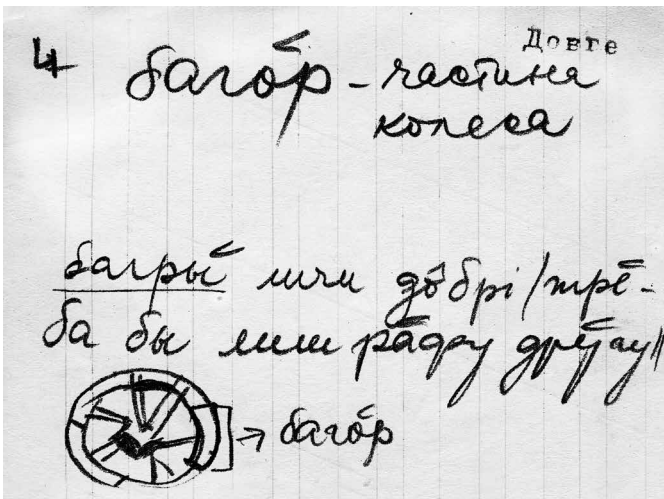 Довге
4 баго́р - частина
колеса
багры́ ишчи до̂брі / тре̂-
ба бы лиш ра́фу дру́гу //
→ баго́р